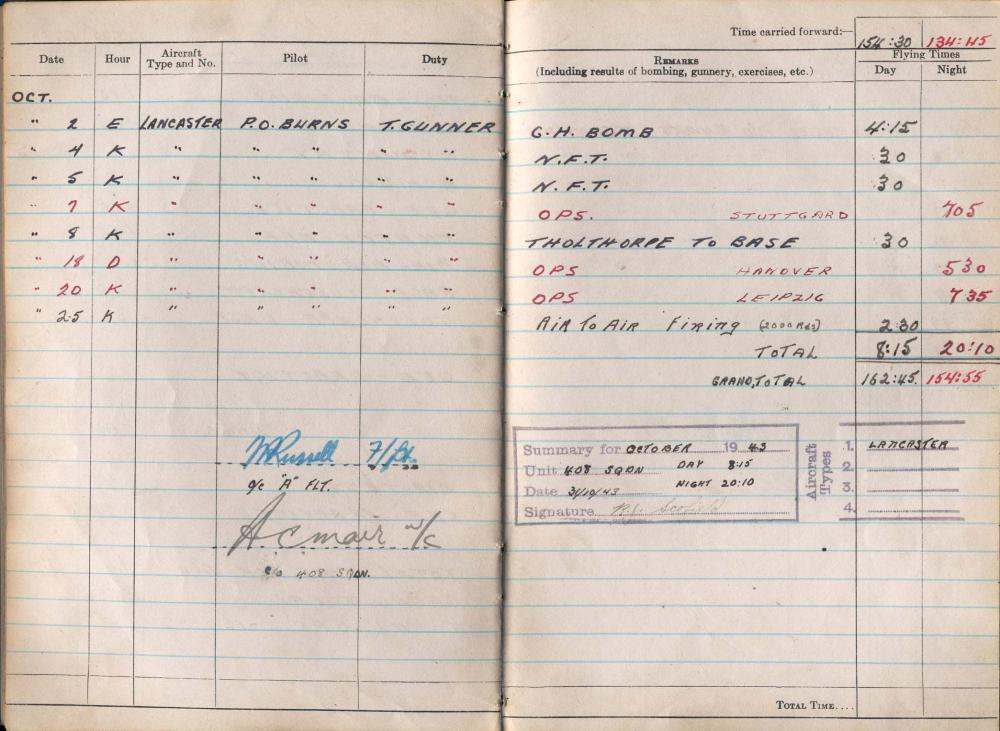 Date Hour Aircraft Type and No. Pilot Duty
OCT.
" 2 E LANCASTER P.O. BURNS T. GUNNER
" 4 K " " " " "
" 5 K " " " " "
" 7 K " " " " "
" 8 K " " " " "
" 18 D " " " " "
" 20 K " " " " "
" 25 K " " " " "
Russell F/Lt.
o/c "A" FLT.
A C Mair W/C
o/c 408 SQDN.
Time carried forward:— 154:30 134:45
REMARKS
(Including results of bombing, gunnery, exercises, etc.)
Flying Times
Day Night
G.H. BOMB 4:15
N.F.T. 30
N.F.T. 30
OPS. STUTTGARD 705
THOLTHORPE TO BASE 30
OPS HANOVER 530
OPS LEIPZIG 735
AIR TO AIR FIRING (2000 RDS) 2:30
TOTAL 8:15 20:10
GRAND TOTAL 162:45 154:55
Summary for OCTOBER 1943
Unit 408 SQDN DAY 8:15
Date 31/10/43 NIGHT 20:10
Signature
Aircraft Types
1. LANCASTER
2.
3.
4.
TOTAL TIME....